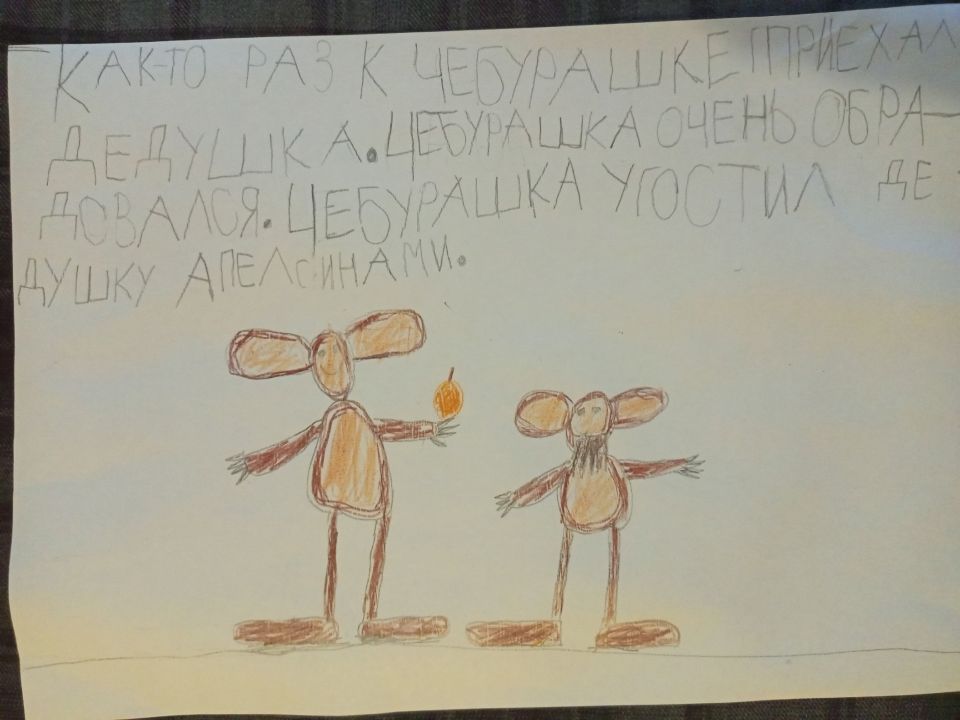 КАК-ТО РАЗ К ЧЕБУРАШКЕ ПРИЕХАЛ
ДЕДУШКА. ЧЕБУРАШКА ОЧЕНЬ ОБРА-
ДОВАЛСЯ. ЧЕБУРАШКА УГОСТИЛ ДЕ-
ДУШКУ АПЕЛЬСИНАМИ.